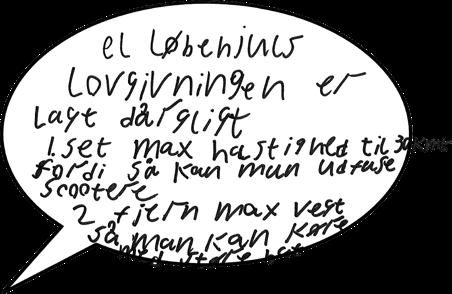 el løbehjuls
Lovgivningen er
Lagt dårgligt
1. set max hastighed til 30
fordi så kan man udfase
scootere
2 fjern max vest
så man kan køre
med større